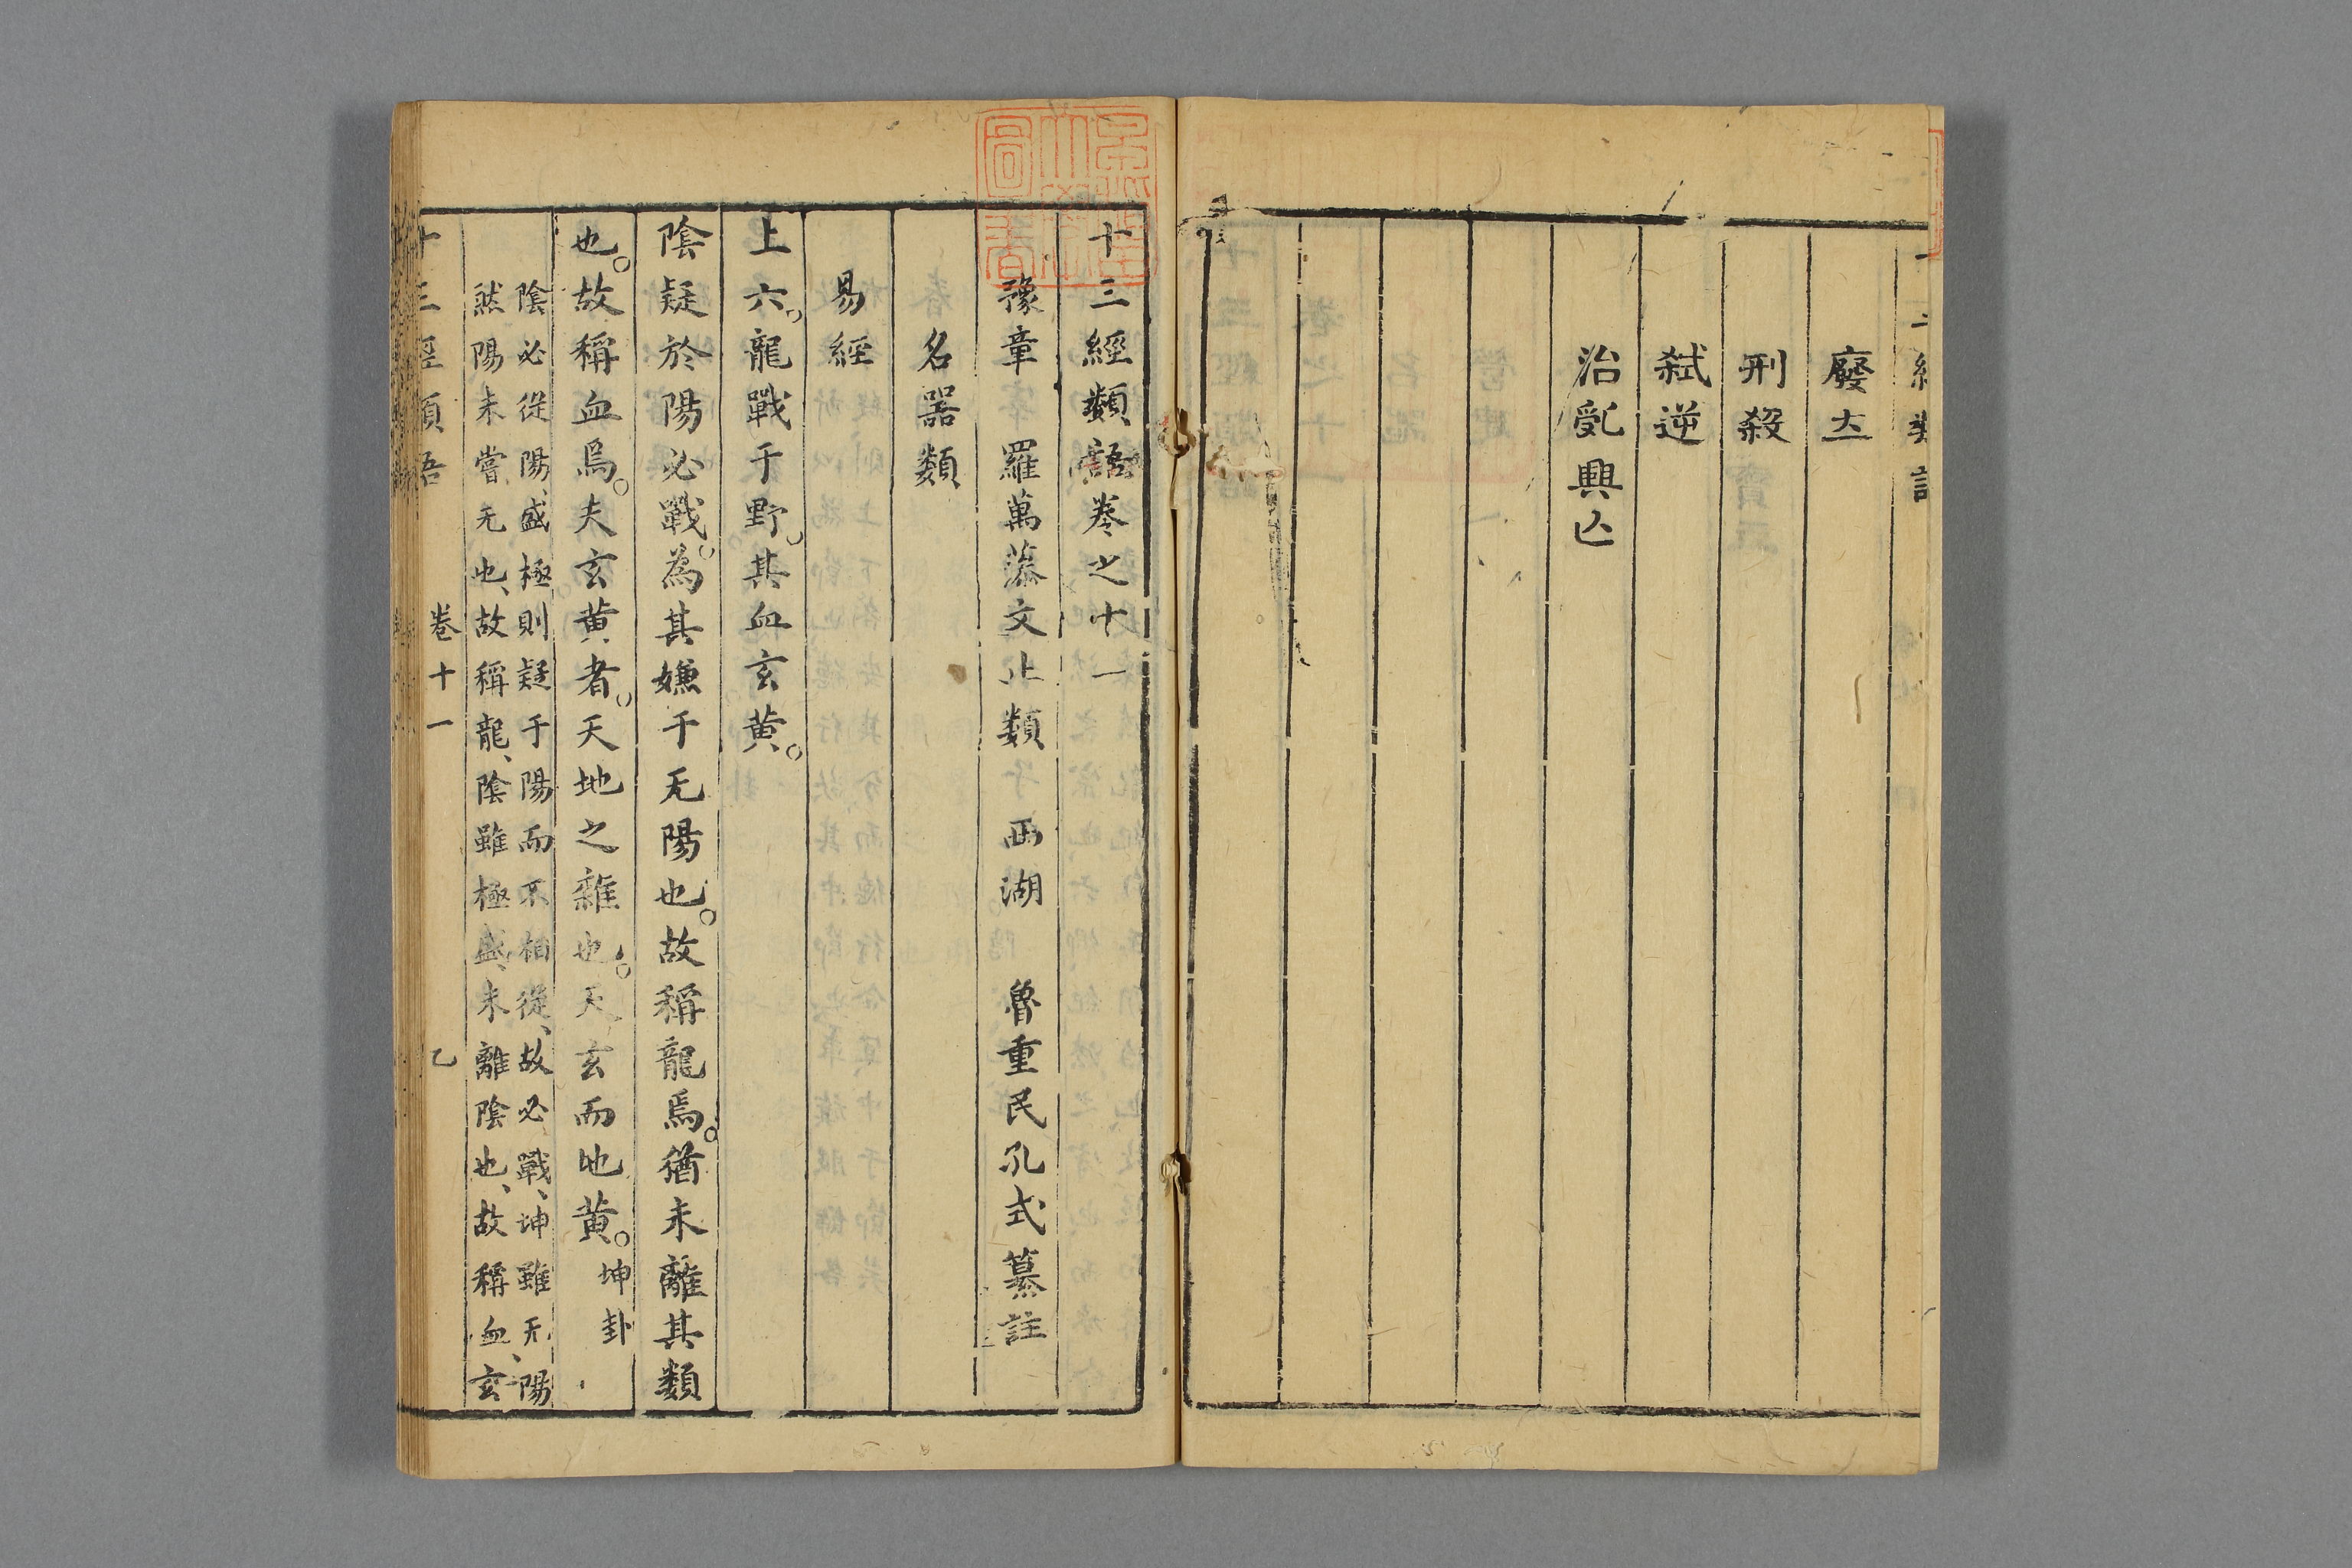 廢立
刑殺
弑逆
治亂興亾
十三經類語卷之十一
豫章 羅萬藻文止類 西湖 魯重民孔式纂註
名器類
易經
上六。龍戰于野。其血玄黃。
陰疑於陽必戰。為其嫌于无陽也。故稱龍焉。猶未離其類
也。故稱血焉。夫玄黃者。天地之雜也。天玄而地黃。坤卦
陰必從陽、盛極則疑于陽而不相從、故必戰、坤雖无陽、
然陽未嘗无也、故稱龍、陰雖極盛、未離陰也、故稱血、玄
卷十一
乙